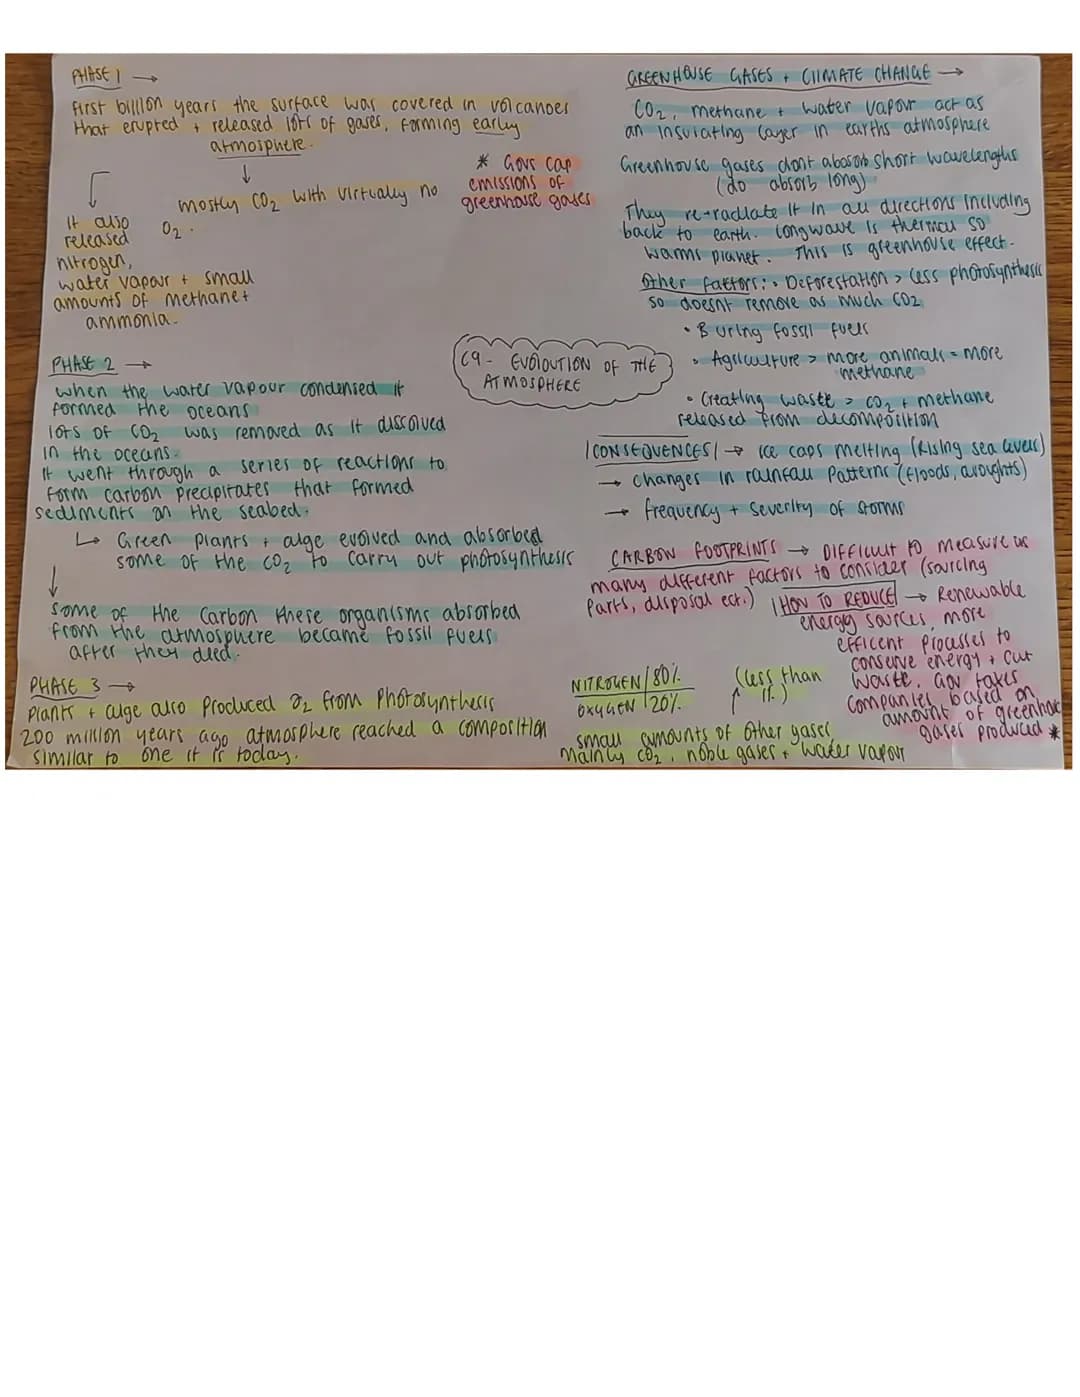 PHASE 1 →
First billion years the surface was covered in volcanoes
that erupted + released lots of gases, forming early
atmosphere.
mostly CO2 with virtually no
O2.
It also
released
nitrogen,
water vapour + small
amounts of methane +
ammonia.
* Govs cap
emissions of
greenhouse gases
PHASE 2 →
When the water vapour condensed it
formed the oceans
lots of CO2 was removed as it dissolved
in the oceans.
It went through a series of reactions to
form carbon precipitates that formed
sediments on the seabed.
↳ Green plants + alge evolved and absorbed
some of the CO2 to carry out photosynthesis
↓
Some of the carbon these organisms absorbed
from the atmosphere became fossil fuels
after they died.
PHASE 3 →
Plants + alge also produced O2 from photosynthesis
200 million years ago atmosphere reached a composition
similar to one it is today.
C9 - EVOLOUTION OF THE
ATMOSPHERE
GREENHOUSE GASES + CLIMATE CHANGE →
CO2, methane + water vapour act as
an insulating layer in earths atmosphere
Greenhouse gases dont abosorb short wavelengths
(do absorb long)
They re-radiate it in all directions including
back to earth. Longwave is thermal so
warms planet. This is greenhouse effect.
Other factors: • Deforestation > less photosynthesis
so doesnt remove as much CO2
• Buring fossil fuels
• Agriculture > more animals = more
methane
• Creating waste > CO2 + methane
released from decomposition
|CONSEQUENCES| → ice caps melting (rising sea levels)
→ changes in rainfall patterns (floods, droughts)
→ frequency + severity of storms
CARBON FOOTPRINTS → DIFFICULT to measure as
many different factors to consider (sourcing
parts, disposal ect.)
|HOW TO REDUCE| → Renewable
energy sources, more
efficent processes to
conserve energy + cut
waste, Gov taxes
companies based on
amount of greenhouse
gases produced *
NITROGEN | 80%
OXYGEN | 20%
(less than
1%)
small amounts of other gases
mainly CO2, noble gases + water vapour